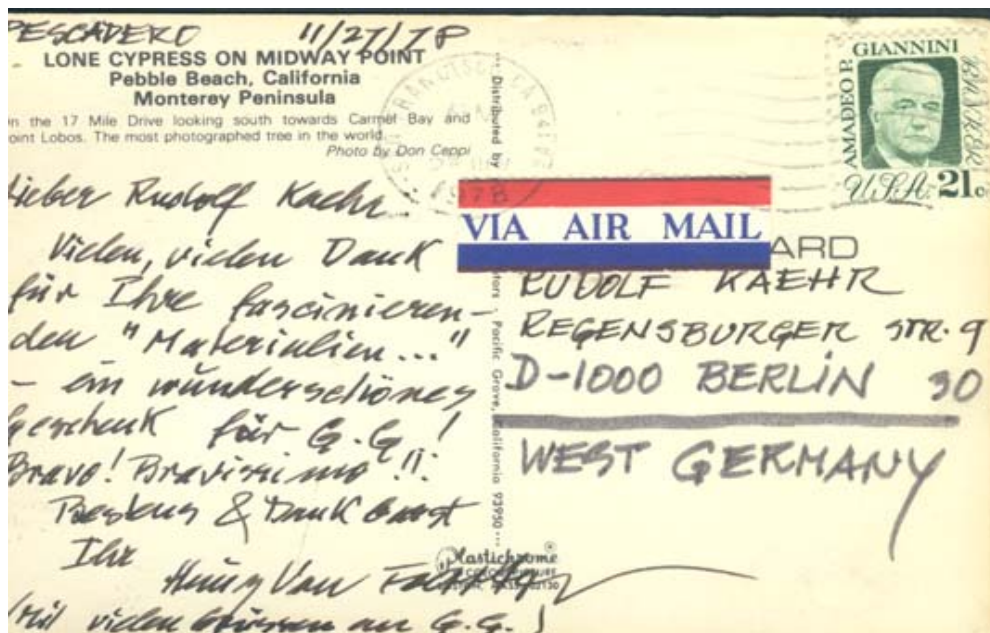 PESCADERO 11/27/78
LONE CYPRESS ON MIDWAY POINT
Pebble Beach, California
Monterey Peninsula
On the 17 Mile Drive looking south towards Carmel Bay and
Point Lobos. The most photographed tree in the world.
Photo by Don Ceppi
Lieber Rudolf Kaehr
Vielen, vielen Dank
für Ihre fascinieren-
den "Materialien..."
- ein wunderschönes
Geschenk für G.G!
Bravo! Bravissimo!!
Bestens & Dankbarst
Ihr
Heinz Von Foerster
Mit vielen Grüssen an G.G.!
Distributed by
Pacific Grove, California 93950
Plastichrome
SAN FRANCISCO, CA
1978
VIA AIR MAIL
ARD
AMADEO P. GIANNINI
BANKER
U.S.A. 21c
RUDOLF KAEHR
REGENSBURGER STR. 9
D-1000 BERLIN 30
WEST GERMANY